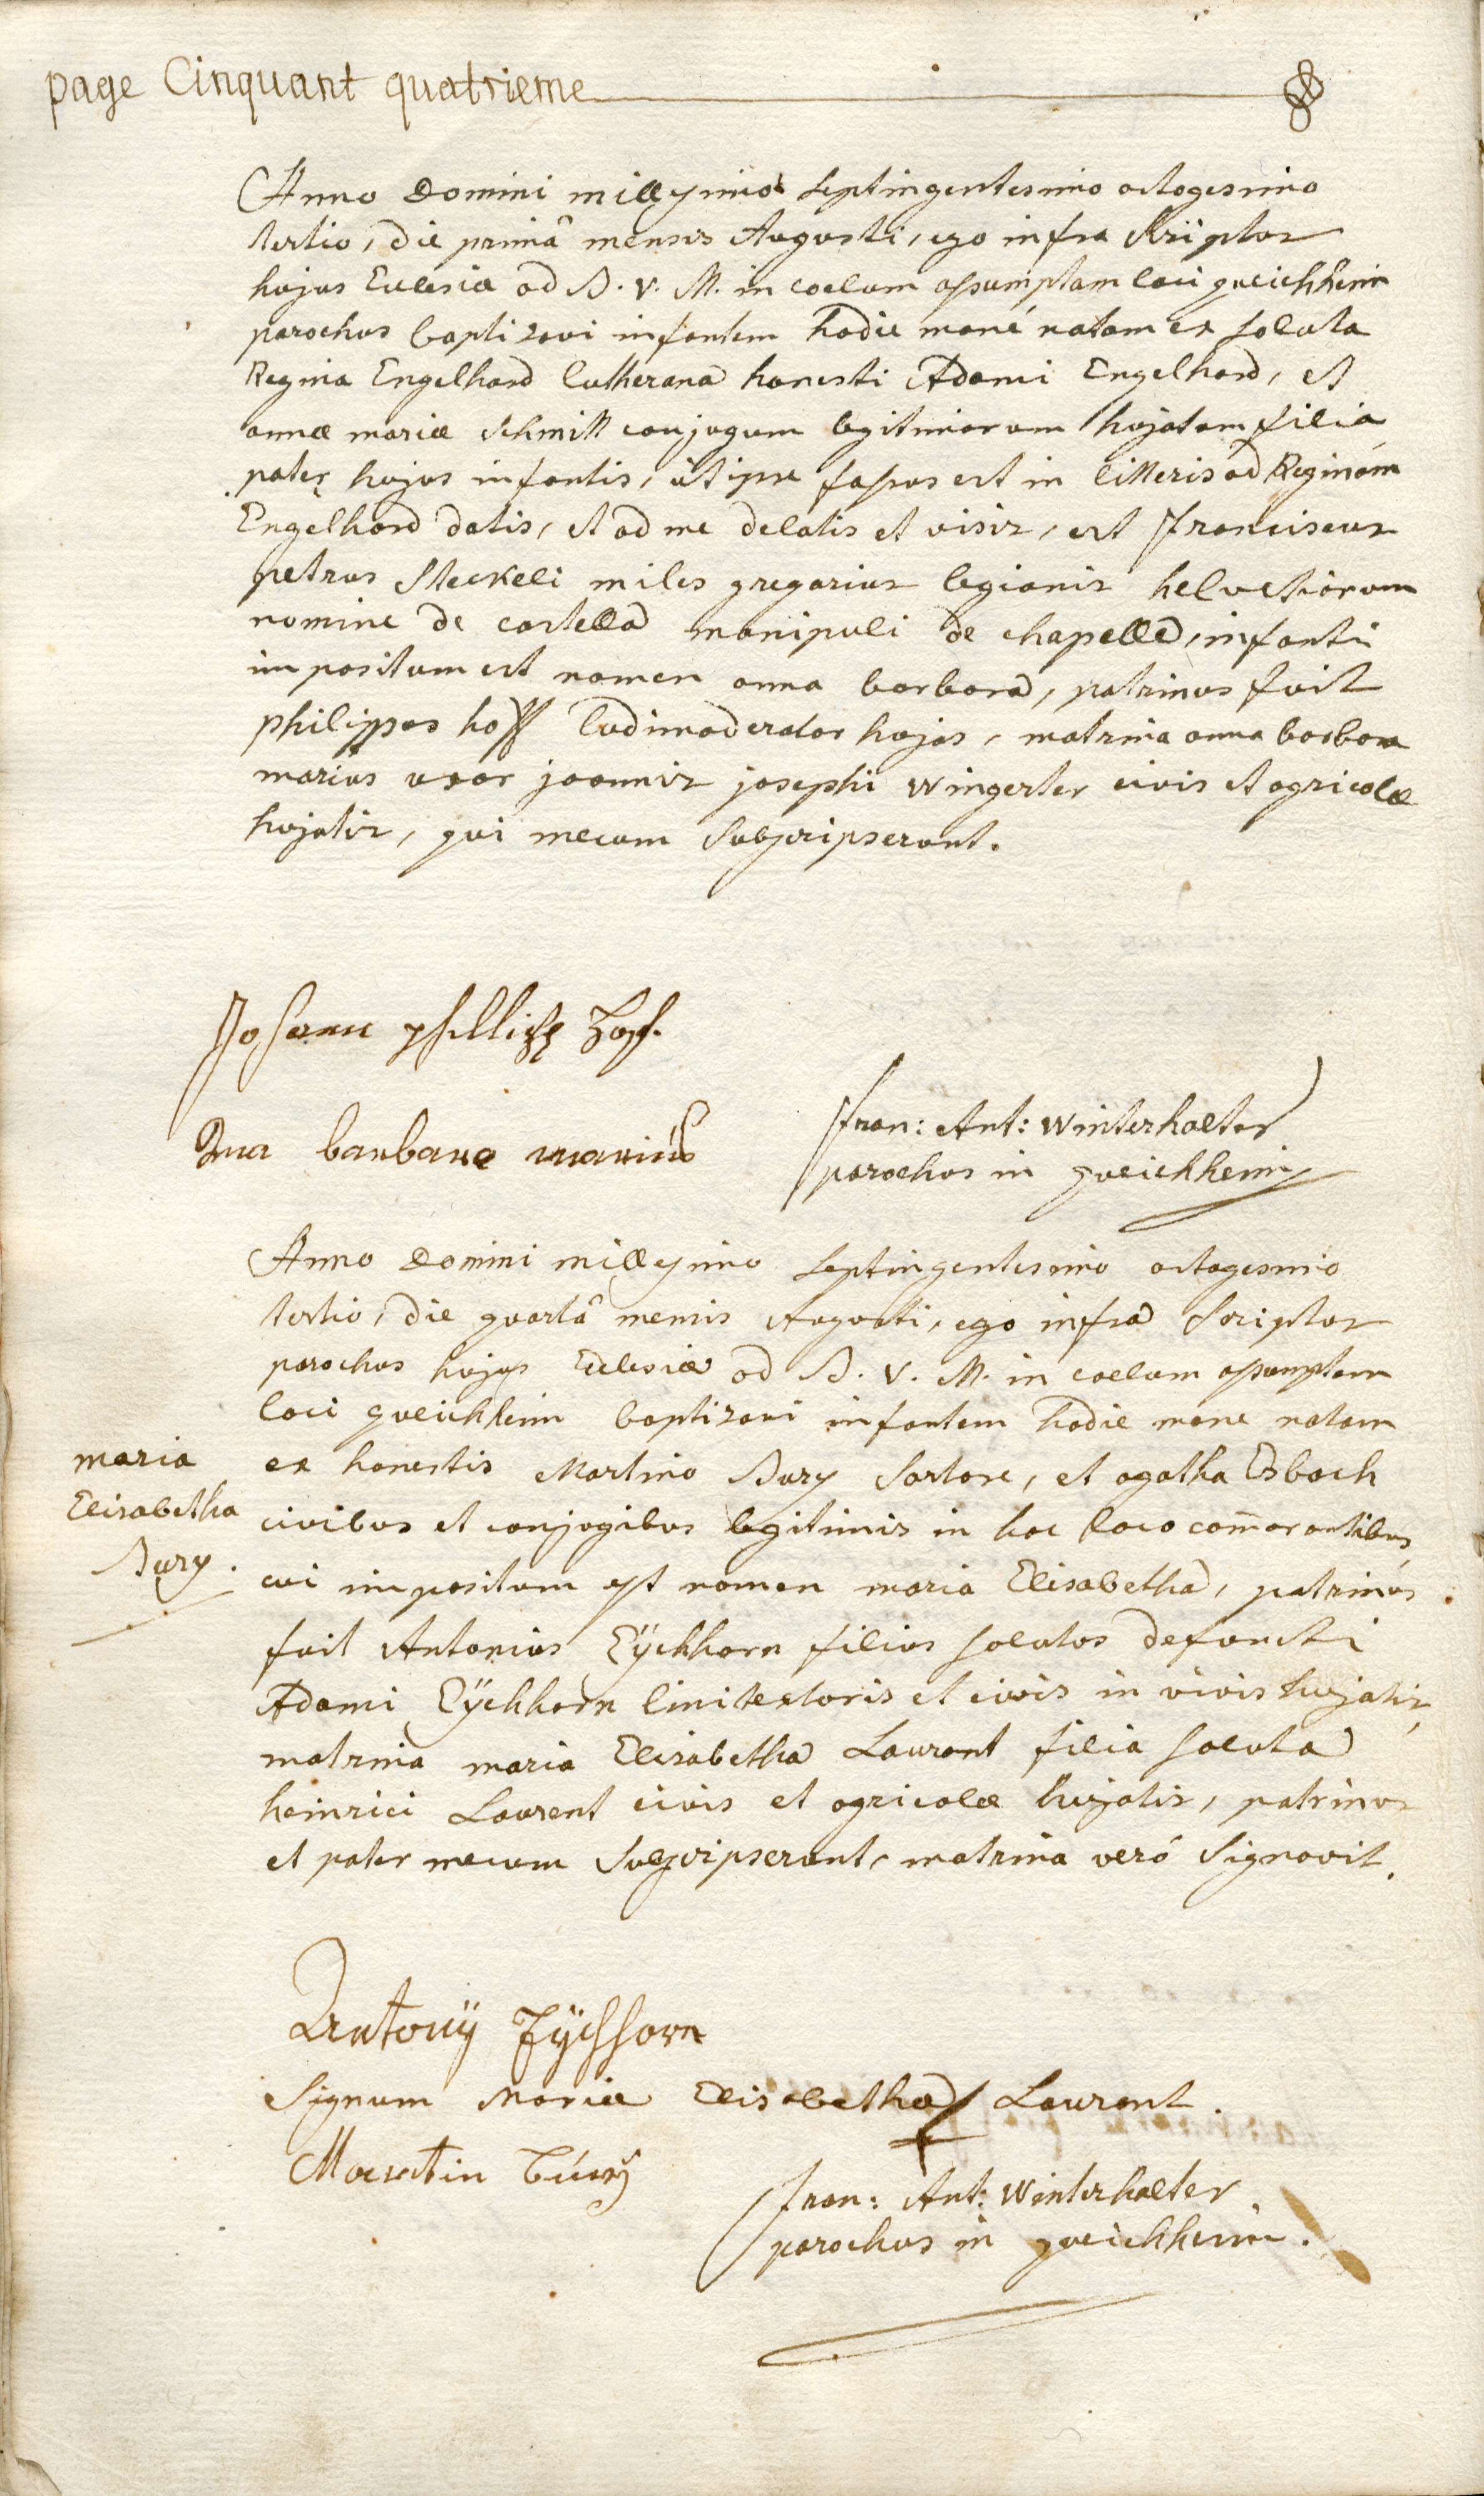 page Cinquant quatrieme
Anno Domini millesimo Septingentesimo octogesimo
tertio, die primâ mensis Augusti, ego infra Scriptus
hujus Eclesiæ ad B. V. M. in coelum assumptam loci queichheim
parochus baptizavi infantem hodie mane natam ex soluta
Regina Engelhard lutherana honesti Adami Engelhard, et
annæ mariæ Schmitt conjugum legitimorum hujatum filia
pater hujus infantis, ut ipse fassus est in litteris ad Reginam
Engelhard datis, et ad me delatis et visis, est Franciscus
petrus Steckeli miles gregarius legionis helvetiorum
nomine de castella manipuli de chapelle, infanti
impositum est nomen anna barbara, patrinus fuit
philippus hoff ludimoderator hujas, matrina anna barbara
marius uxor joannis josephi wingerter civis et agricolæ
hujatis, qui mecum subscripserunt.
Johannn phillipp hoff.
Ana barbara marius
Fran: Ant: Winterhalter
parochus in queichheim
Anno Domini millesimo Septingentesimo octogesimo
tertio, die quartâ mensis Augusti, ego infra Scriptus
parochus hujus Eclesiæ ad B. V. M. in coelum assumptam
loci queichheim baptizavi infantem hodie mane natam
ex honestis Martino Bury Sartore, et agatha Esbach
civibus et conjugibus legitimis in hoc loco com̄orantibus,
cui impositum est nomen maria Elisabetha, patrinus
fuit Antonius Eÿchhorn filius solutus defuncti
Adami Eÿchhorn linitextoris et civis in vivis hujatis,
matrina maria Elisabetha Laurent filia soluta
heinrici Laurent civis et agricolæ hujatis, patrinus
et pater mecum subscripserunt, matrina veró Signavit.
maria
Elisabetha
Bury.
Antonÿ Eÿchhorn
Signum Mariæ Elisabethæ + Laurent.
Martin Búrÿ
Fran: Ant: Winterhalter
parochus in queichheim.